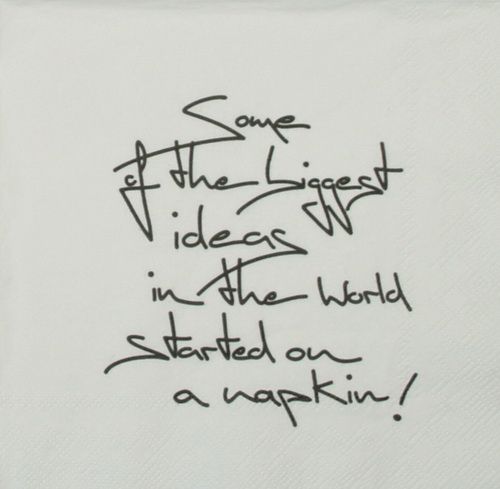 Some
of the biggest
ideas
in the world
started on
a napkin!